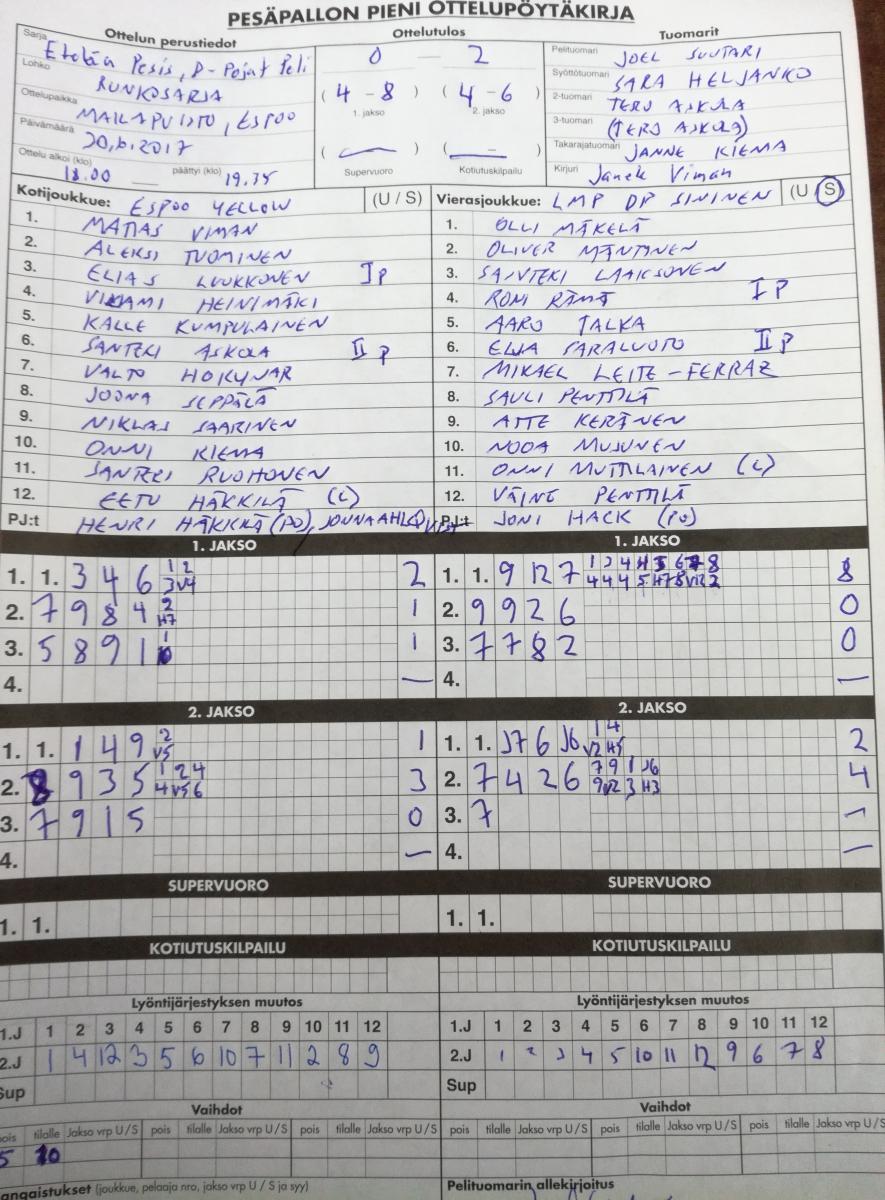 PESÄPALLON PIENI OTTELUPÖYTÄKIRJA
Ottelun perustiedot
Sarja Etelän Pesis, D-Pojat Peli
Lohko RUNKOSARJA
Ottelupaikka MAILAPUISTO, ESPOO
Päivämäärä 20.6.2017
Ottelu alkoi (klo) 18.00 päättyi (klo) 19.35
Ottelutulos
0 — 2
( 4 - 8 ) ( 4 - 6 )
1. jakso 2. jakso
( — ) ( — )
Supervuoro Kotiutuskilpailu
Tuomarit
Pelituomari JOEL SUUTARI
Syöttötuomari SARA HELJANKO
2-tuomari TERO ASKOLA
3-tuomari (TERO ASKOLA)
Takarajatuomari JANNE KIEMA
Kirjuri Janek Viman
Kotijoukkue: ESPOO YELLOW (U / S)
1. MATIAS VIMAN
2. ALEKSI TUOMINEN
3. ELIAS LUUKKONEN I P
4. VILJAMI HEINIMÄKI
5. KALLE KUMPULAINEN
6. SANTERI ASKOLA II P
7. VALTO HOKYNAR
8. JOONA SEPPÄLÄ
9. NIKLAS SAARINEN
10. ONNI KIEMA
11. SANTERI RUOHONEN
12. EETU HÄKKILÄ (L)
PJ:t HENRI HÄKKILÄ (PO), JOUNA
Vierasjoukkue: LMP DP SININEN (U / S)
1. OLLI MÄKELÄ
2. OLIVER MÄNTYNEN
3. SANTERI LAAKSONEN
4. RONI RÄMÄ I P
5. AARO TALKA
6. ELJA SARALUOTO II P
7. MIKAEL LEITE-FERRAZ
8. SAULI PENTTILÄ
9. ATTE KERÄNEN
10. NOOA MUJUNEN
11. ONNI MUTTILAINEN (L)
12. VÄINÖ PENTTILÄ
PJ:t JONI HACK (PO)
1. JAKSO
1. 1. 3 4 6 1 2 2
3 V4
2. 7 9 8 4 2 1
H7
3. 5 8 9 1 1 1
10
4. —
1. JAKSO
1. 1. 9 12 7 8
2. 9 9 2 6 0
3. 7 7 8 2 0
4. —
2. JAKSO
1. 1. 1 4 9 2 1
V5
2. 8 9 3 5 1 2 4 3
4 V5 6
3. 7 9 1 5 0
4. —
2. JAKSO
1. 1. J7 6 J6 1 4 2
V2 H5
2. 7 4 2 6 7 9 1 J6 4
9 V2 3 H3
3. 7 —
4. —
SUPERVUORO
1. 1.
SUPERVUORO
1. 1.
KOTIUTUSKILPAILU
KOTIUTUSKILPAILU
Lyöntijärjestyksen muutos
1.J 1 2 3 4 5 6 7 8 9 10 11 12
2.J 1 4 12 3 5 6 10 7 11 2 8 9
Sup
Lyöntijärjestyksen muutos
1.J 1 2 3 4 5 6 7 8 9 10 11 12
2.J 1 2 3 4 5 10 11 12 9 6 7 8
Sup
Vaihdot
pois tilalle Jakso vrp U/S pois tilalle Jakso vrp U/S pois tilalle Jakso vrp U/S
5 10
Vaihdot
pois tilalle Jakso vrp U/S pois tilalle Jakso vrp U/S pois tilalle Jakso vrp U/S
angaistukset (joukkue, pelaaja nro, jakso vrp U / S ja syy)
Pelituomarin allekirjoitus